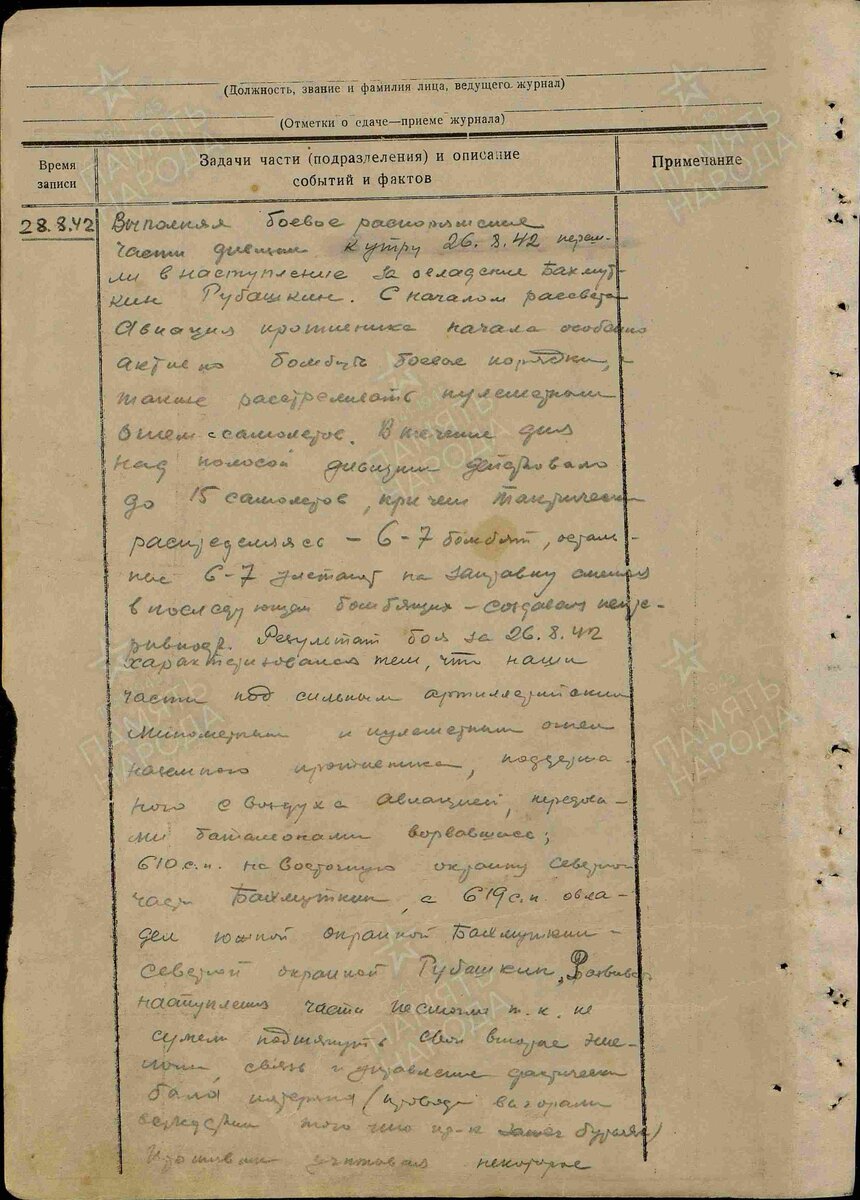 (Должность, звание и фамилия лица, ведущего журнал)
(Отметки о сдаче—приеме журнала)
Время записи
Задачи части (подразделения) и описание событий и фактов
Примечание
28.8.42
Выполняя боевое распоряжение
части дивизии к утру 26.8.42 переш-
ли в наступление за овладение Бахмут-
кин Рубашкин. С началом рассвета
Авиация противника начала особенно
активно бомбить боевое порядки, а
также расстреливать пулеметным
огнем с самолетов. В течение дня
над полосой дивизии действовало
до 15 самолетов, при чем тактически
распределяясь – 6-7 бомбят, осталь-
ные 6-7 улетают на заправку
в последующем бомбящих – создавая непре-
рывность. Результат боя за 26.8.42
характеризовался тем, что наши
части под сильным артиллерийским
минометным и пулеметным огнем
наземного противника, поддержа-
ного с воздуха авиацией, передовы-
ми баталионами ворвавшись;
610 с.п. на восточную окраину северной
части Бахмуткин, а 619 с.п. овла-
дел южной окраиной Бахмуткин –
северной окраиной Рубашкин, Развивать
наступления части не смогли т.к. не
сумели подтянуть свои вторые эше-
лоны, связь и управление фактически
была потеряна (провода выгорали
того что пр-к бурьян)
некоторое
ПАМЯТЬ НАРОДА
ПАМЯТЬ НАРОДА
ПАМЯТЬ НАРОДА
ПАМЯТЬ НАРОДА
ПАМЯТЬ НАРОДА
ПАМЯТЬ НАРОДА